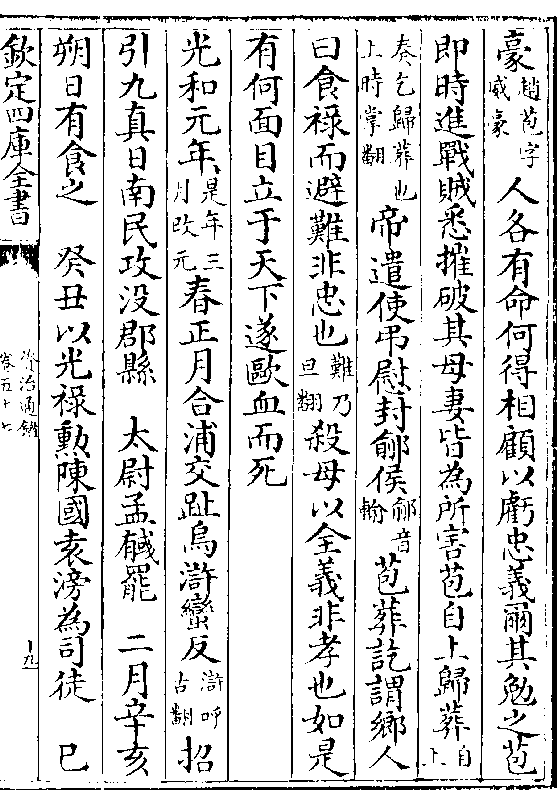 豪趙苞字威豪人各有命何得相顧以虧忠義爾其勉之苞
即時進戰賊悉摧破其母妻皆為所害苞自上歸葬自上
奏乞歸葬也上時掌翻帝遣使弔慰封鄃侯鄃音輸苞葬訖謂鄉人
曰食祿而避難非忠也難乃旦翻殺母以全義非孝也如是
有何面目立于天下遂歐血而死
光和元年是年三月改元春正月合浦交趾烏滸蠻反滸呼古翻招
引九真日南民攻沒郡縣 太尉孟戫罷 二月辛亥
朔日有食之 癸丑以光祿勲陳國袁滂為司徒 巳
欽定四庫全書
資治通鑑
卷五十七
十九